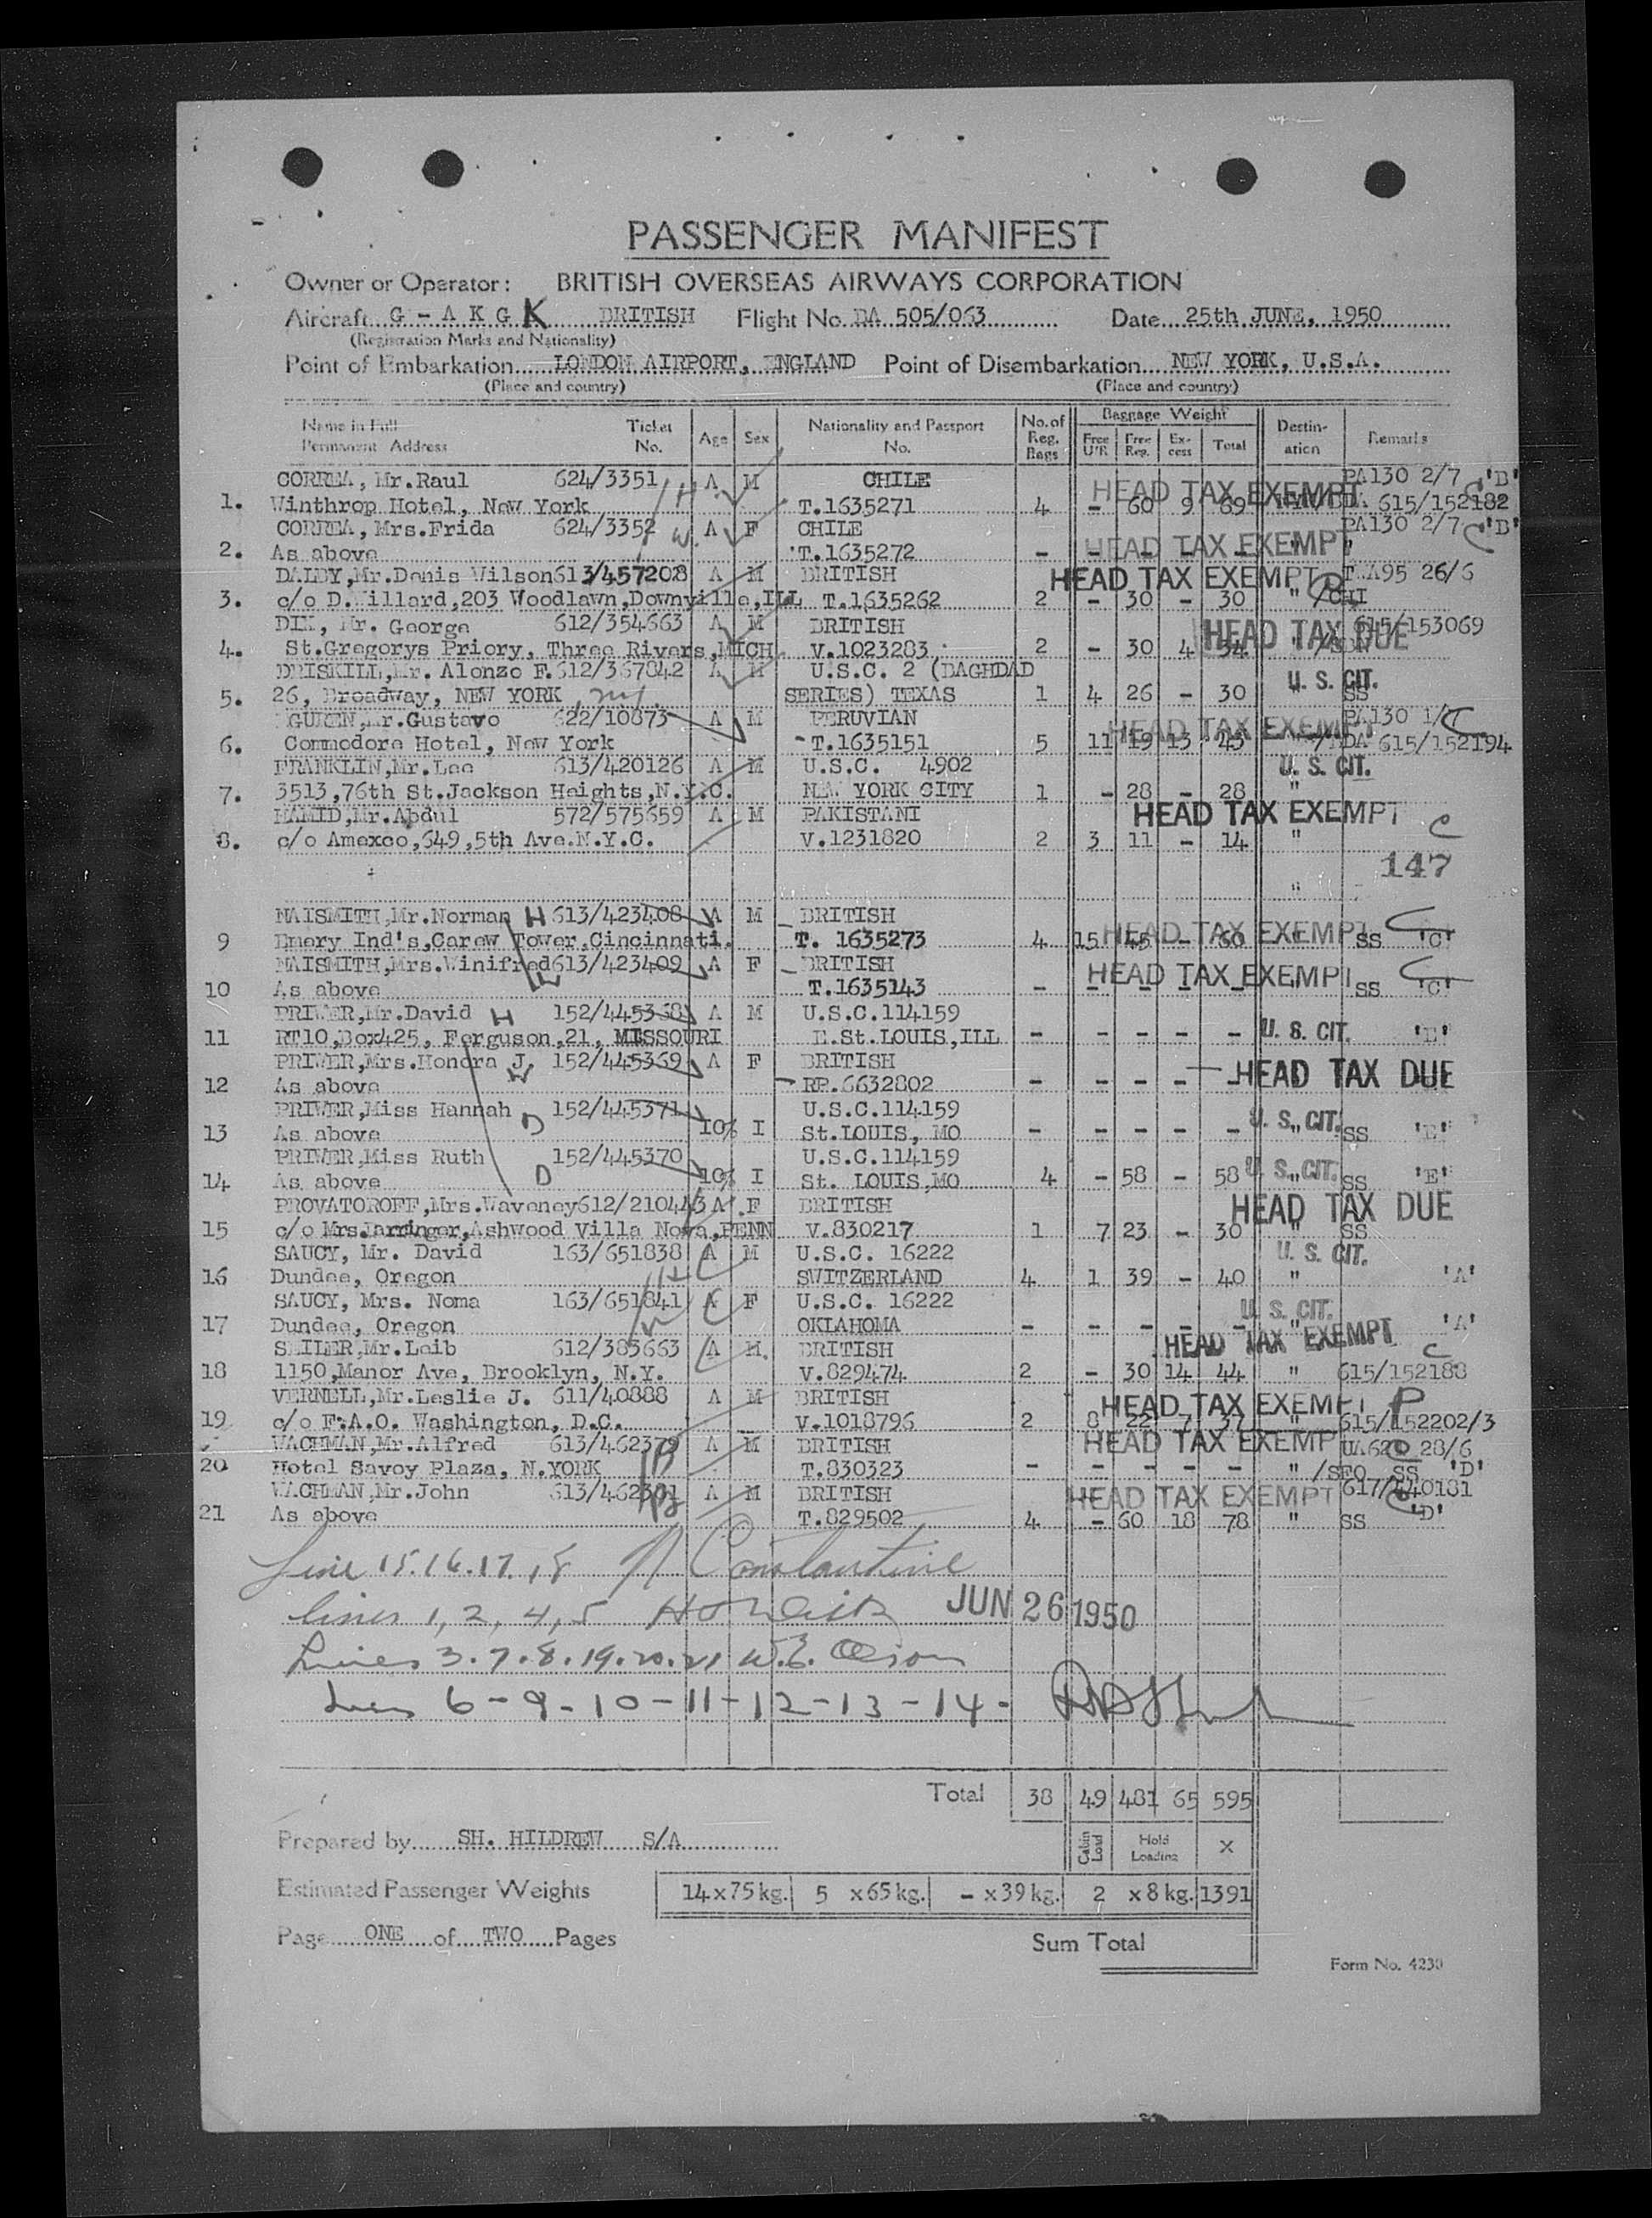 PASSENGER MANIFEST
Owner or Operator: BRITISH OVERSEAS AIRWAYS CORPORATION
Aircraft G - A K G K BRITISH Flight No. BA 505/063 Date 25th JUNE, 1950
(Registration Marks and Nationality)
Point of Embarkation LONDON AIRPORT, ENGLAND Point of Disembarkation NEW YORK, U.S.A.
(Place and country) (Place and country)
Name in Full Ticket Age Sex Nationality and Passport No. of Baggage Weight Destin- Remarks
Permanent Address No. No. Reg. Bags Free U/R Free Reg. Ex-cess Total ation
CORREA, Mr.Raul 624/3351 A M CHILE PA130 2/7 'B'
1. Winthrop Hotel, New York T.1635271 4 - 60 9 69 HEAD TAX EXEMPT 615/152182
CORREA, Mrs.Frida 624/3352 W. A F CHILE PA130 2/7 'B'
2. As above T.1635272 - HEAD TAX EXEMPT
DALBY,Mr.Denis Wilson 613/457208 A M BRITISH HEAD TAX EXEMPT 26/6
3. c/o D.Willard,203 Woodlawn,Downville,ILL T.1635262 2 - 30 - 30 " /CHI
DIX, Mr. George 612/354663 A M BRITISH 615/153069
4. St.Gregorys Priory, Three Rivers,MICH V.1023283 2 - 30 4 34 HEAD TAX DUE
DRISKILL,Mr. Alonzo F. 612/367842 A M U.S.C. 2 (BAGHDAD U. S. CIT.
5. 26, Broadway, NEW YORK SERIES) TEXAS 1 4 26 - 30 SS
EGUREN,Mr.Gustavo 622/10873 A M PERUVIAN HEAD TAX EXEMPT PA130 1/7
6. Commodore Hotel, New York T.1635151 5 11 19 13 43 615/152194
FRANKLIN,Mr.Lee 613/420126 A M U.S.C. 4902 U. S. CIT.
7. 3513,76th St.Jackson Heights,N.Y.C. NEW YORK CITY 1 - 28 - 28 "
HAMID,Mr.Abdul 572/575659 A M PAKISTANI HEAD TAX EXEMPT C
8. c/o Amexco,649,5th Ave.N.Y.C. V.1231820 2 3 11 - 14 "
147
"
NAISMITH,Mr.Norman H 613/423408 A M BRITISH
9 Emery Ind's,Carew Tower,Cincinnati. T. 1635273 4 15 45 - 60 HEAD TAX EXEMPT SS 'C'
NAISMITH,Mrs.Winifred 613/423409 A F BRITISH
10 As above T.1635143 - HEAD TAX EXEMPT SS 'C'
PRIWER,Mr.David H 152/445368 A M U.S.C.114159
11 RT10,Box425, Ferguson,21, MISSOURI E.St.LOUIS,ILL - - - - - U. S. CIT. 'E'
PRIWER,Mrs.Honora J. W 152/445369 A F BRITISH
12 As above RP.6632802 - - - - - HEAD TAX DUE
PRIWER,Miss Hannah D 152/445371 U.S.C.114159
13 As above 10% I St.LOUIS, MO - - - - - U. S. CIT. SS 'E'
PRIWER,Miss Ruth D 152/445370 U.S.C.114159
14 As above 10% I St. LOUIS,MO 4 - 58 - 58 U. S. CIT. SS 'E'
PROVATOROFF,Mrs.Waveney 612/210443 A F BRITISH HEAD TAX DUE
15 c/o Mrs.Jarringer,Ashwood Villa Nova,PENN V.830217 1 7 23 - 30 " SS
SAUCY, Mr. David 163/651838 A M U.S.C. 16222 U. S. CIT.
16 Dundee, Oregon H SWITZERLAND 4 1 39 - 40 " 'A'
SAUCY, Mrs. Noma 163/651841 A F U.S.C. 16222 U. S. CIT.
17 Dundee, Oregon W OKLAHOMA - - - - - " 'A'
SEILER,Mr.Leib 612/385663 A M. BRITISH HEAD TAX EXEMPT C
18 1150,Manor Ave, Brooklyn, N.Y. V.829474 2 - 30 14 44 " 615/152188
VERNELL,Mr.Leslie J. 611/40888 A M BRITISH HEAD TAX EXEMPT P
19 c/o F.A.O. Washington, D.C. V.1018796 2 8 22 7 37 " 615/152202/3
WACHMAN,Mr.Alfred 613/462379 A M BRITISH HEAD TAX EXEMPT UA62 28/6
20 Hotel Savoy Plaza, N.YORK T.830323 - - - - - " /SFO SS 'D'
WACHMAN,Mr.John 613/462301 A M BRITISH HEAD TAX EXEMPT 617/140181
21 As above T.829502 4 - 60 18 78 " SS 'D'
Line 15.16.17.18 N Constantine
lines 1, 2, 4, 5 JUN 26 1950
Lines 3.7.8.19.20.21 W.E. Olson
Lines 6-9-10-11-12-13-14-
Total 38 49 481 65 595
Prepared by SH. HILDREW S/A Cabin Load Hold Loading X
Estimated Passenger Weights 14 x 75 kg. 5 x 65 kg. - x 39 kg. 2 x 8 kg. 1391
Page ONE of TWO Pages Sum Total
Form No. 4230